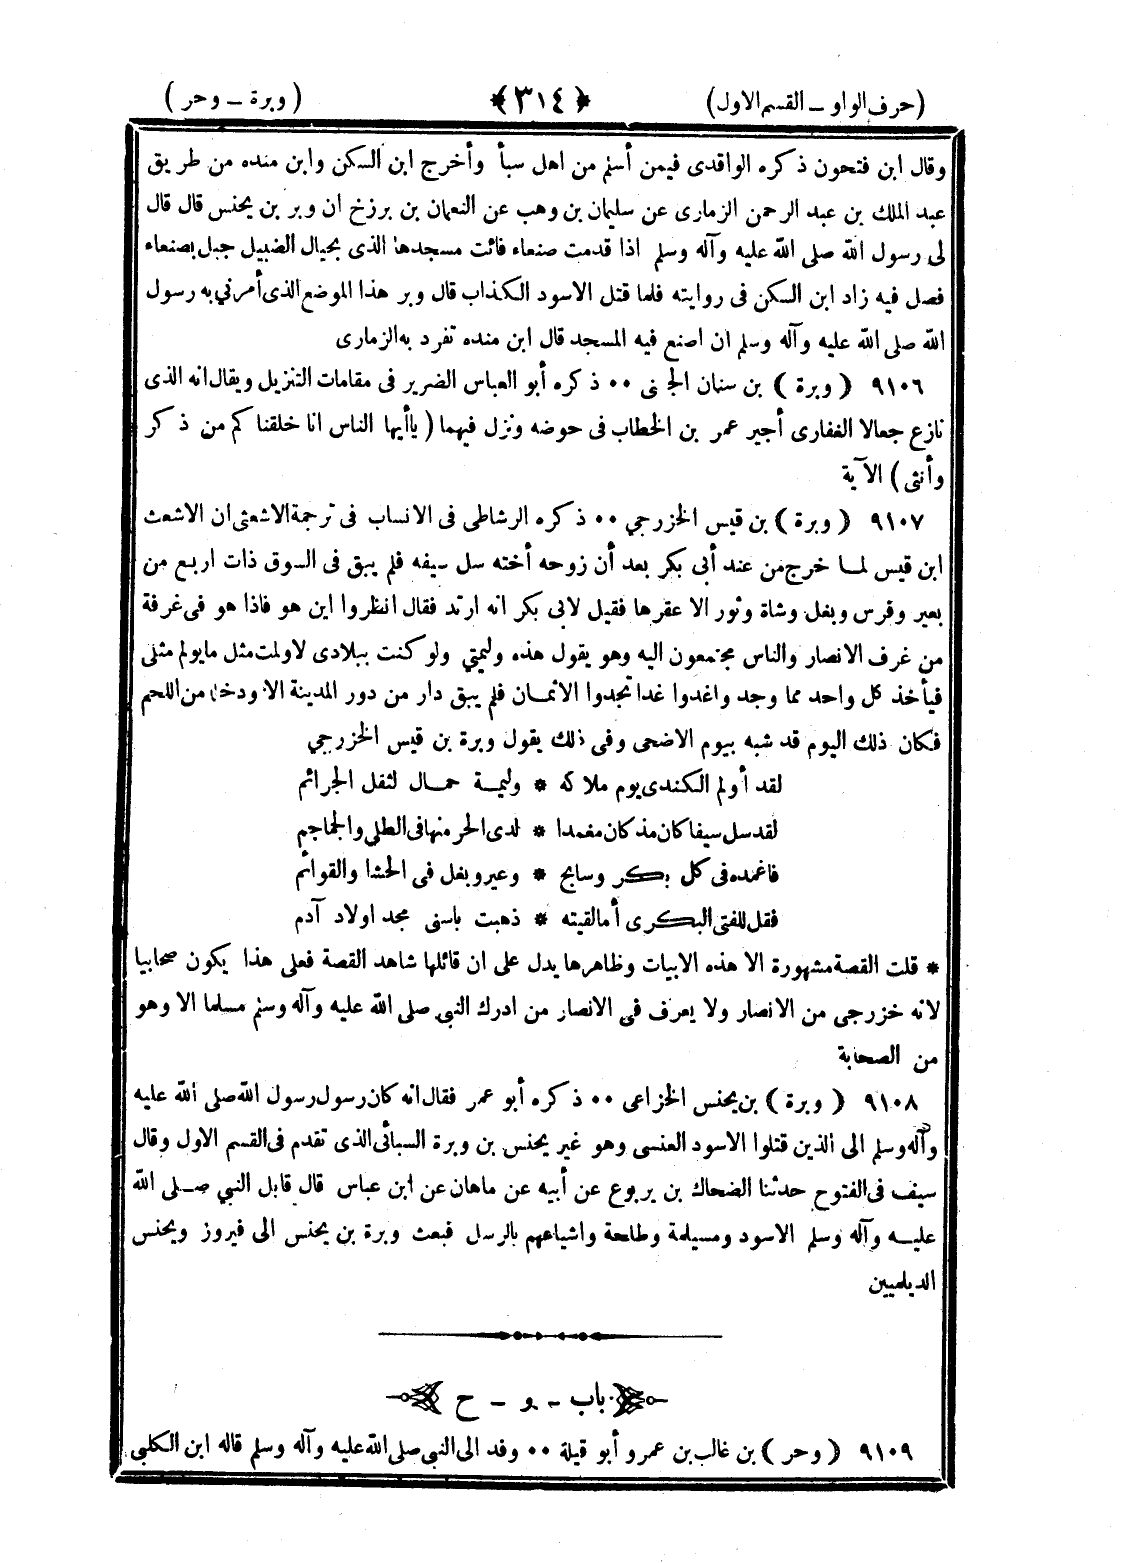 (حرف الواو ـ القسم الاول) ﴿٣١٤﴾ (وبرة ـ وحر)
وقال ابن فتحون ذكره الواقدى فيمن أسلم من اهل سبأ وأخرج ابن السكن وابن منده من طريق
عبد الملك بن عبد الرحمن الزمارى عن سليمان بن وهب عن النعمان بن برزخ ان وبر بن يحنس قال قال
لى رسول الله صلى الله عليه وآله وسلم اذا قدمت صنعاء فائت مسجدها الذى بحيال الضبيل جبل بصنعاء
فصل فيه زاد ابن السكن فى روايته فلما قتل الاسود الكذاب قال وبر هذا الموضع الذى أمرني به رسول
الله صلى الله عليه وآله وسلم ان اصنع فيه المسجد قال ابن منده تفرد به الزمارى
٩١٠٦ (وبرة) بن سنان الجهنى ٠٠ ذكره أبو العباس الضرير فى مقامات التنزيل ويقال انه الذى
نازع جعالا الغفارى أجير عمر بن الخطاب فى حوضه ونزل فيهما (ياأيها الناس انا خلقناكم من ذكر
وأنثى) الآية
٩١٠٧ (وبرة) بن قيس الخزرجي ٠٠ ذكره الرشاطى فى الانساب فى ترجمة الاشعثى ان الاشعث
ابن قيس لما خرج من عند أبى بكر بعد أن زوجه أخته سل سيفه فلم يبق فى السوق ذات اربع من
بعير وفرس وبغل وشاة وثور الا عقرها فقيل لابى بكر انه ارتد فقال انظروا اين هو فاذا هو فى غرفة
من غرف الانصار والناس مجتمعون اليه وهو يقول هذه وليمتي ولو كنت ببلادى لاولمت مثل مايولم مثلى
فيأخذ كل واحد مما وجد واغدوا غدا تجدوا الاثمان فلم يبق دار من دور المدينة الا ودخلها من اللحم
فكان ذلك اليوم قد شبه بيوم الاضحى وفى ذلك يقول وبرة بن قيس الخزرجي
لقد أولم الكندى يوم ملاكه * وليمة حمال لثقل الجرائم
لقد سل سيفا كان مذ كان مغمدا * لدى الحرمنها فى الطلى والجماجم
فاغمده فى كل بكر وسابح * وعير وبغل فى الحشا والقوائم
فقل للفتى البكرى أما لقيته * ذهبت باسنى مجد اولاد آدم
* قلت القصة مشهورة الا هذه الابيات وظاهرها يدل على ان قائلها شاهد القصة فعلى هذا يكون صحابيا
لانه خزرجى من الانصار ولا يعرف فى الانصار من ادرك النبي صلى الله عليه وآله وسلم مسلما الا وهو
من الصحابة
٩١٠٨ (وبرة) بن يحنس الخزاعى ٠٠ ذكره أبو عمر فقال انه كان رسول رسول الله صلى الله عليه
وآله وسلم الى الذين قتلوا الاسود العنسى وهو غير يحنس بن وبرة السبائى الذى تقدم فى القسم الاول وقال
سيف فى الفتوح حدثنا الضحاك بن يربوع عن أبيه عن ماهان عن ابن عباس قال قابل النبي صلى الله
عليه وآله وسلم الاسود ومسيلمة وطلحة واشياعهم بالرسل فبعث وبرة بن يحنس الى فيروز ويحنس
الديلميين
باب ـ و ـ ح
٩١٠٩ (وحر) بن غالب بن عمرو أبو قيلة ٠٠ وفد الى النبى صلى الله عليه وآله وسلم قاله ابن الكلبى